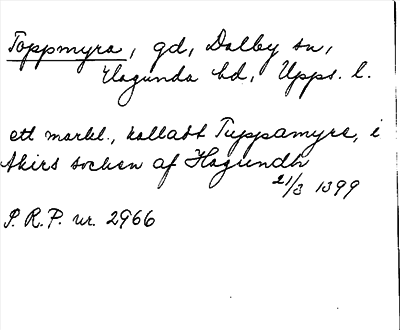 Toppmyra, gd, Dalby sn,
Hagunda hd, Upps. l.
ett markl., kallabt Tuppamyre, i
Akirs sochen af Hagundh
21/3 1399
S. R. P. nr. 2966